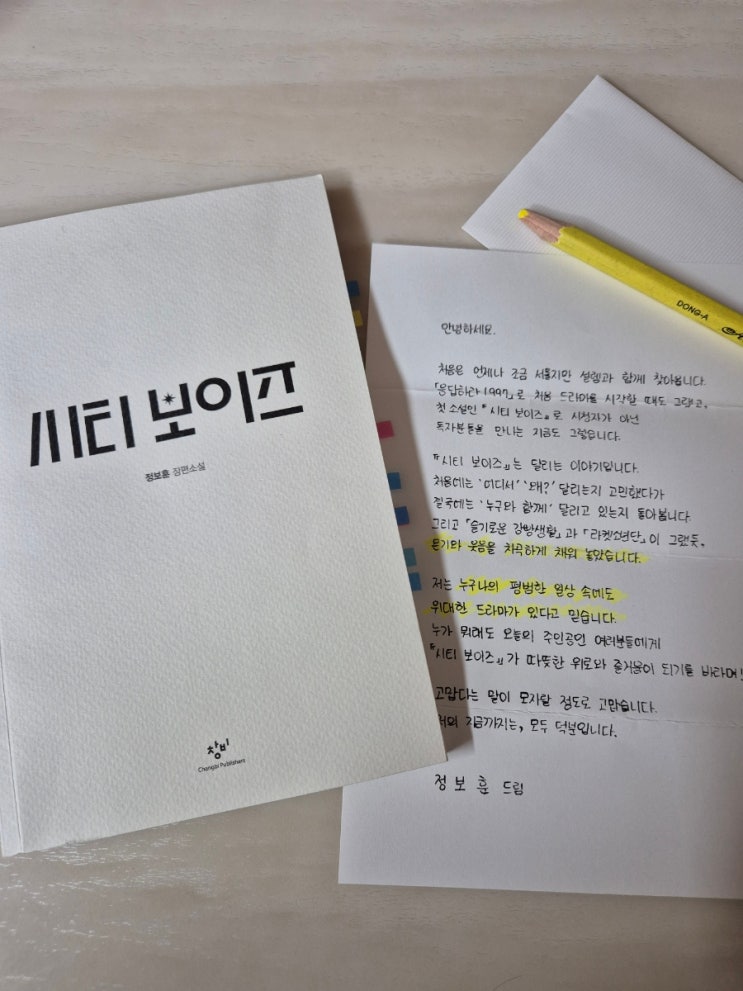 시티 보이즈
정보훈 장편소설
창비
Changbi Publishers
DONG-A
안녕하세요.
처음은 언제나 조금 서툴지만 설렘과 함께 찾아옵니다.
「응답하라 1997」로 처음 드라마를 시작할 때도 그랬고,
첫 소설인 『시티 보이즈』로 시청자가 아닌
독자분들을 만나는 지금도 그렇습니다.
『시티 보이즈』는 달리는 이야기입니다.
처음에는 '어디서' '왜?' 달리는지 고민했다가
결국에는 '누구와 함께' 달리고 있는지 돌아봅니다.
그리고 「슬기로운 감빵생활」과 「라켓소년단」이 그랬듯,
온기와 웃음을 차곡하게 채워 놓았습니다.
저는 누구나의 평범한 일상 속에도
위대한 드라마가 있다고 믿습니다.
누가 뭐래도 오늘의 주인공인 여러분들에게
『시티 보이즈』가 따뜻한 위로와 즐거움이 되기를 바라며!
고맙다는 말이 모자랄 정도로 고맙습니다.
저의 지금까지는, 모두 덕분입니다.
정보훈 드림